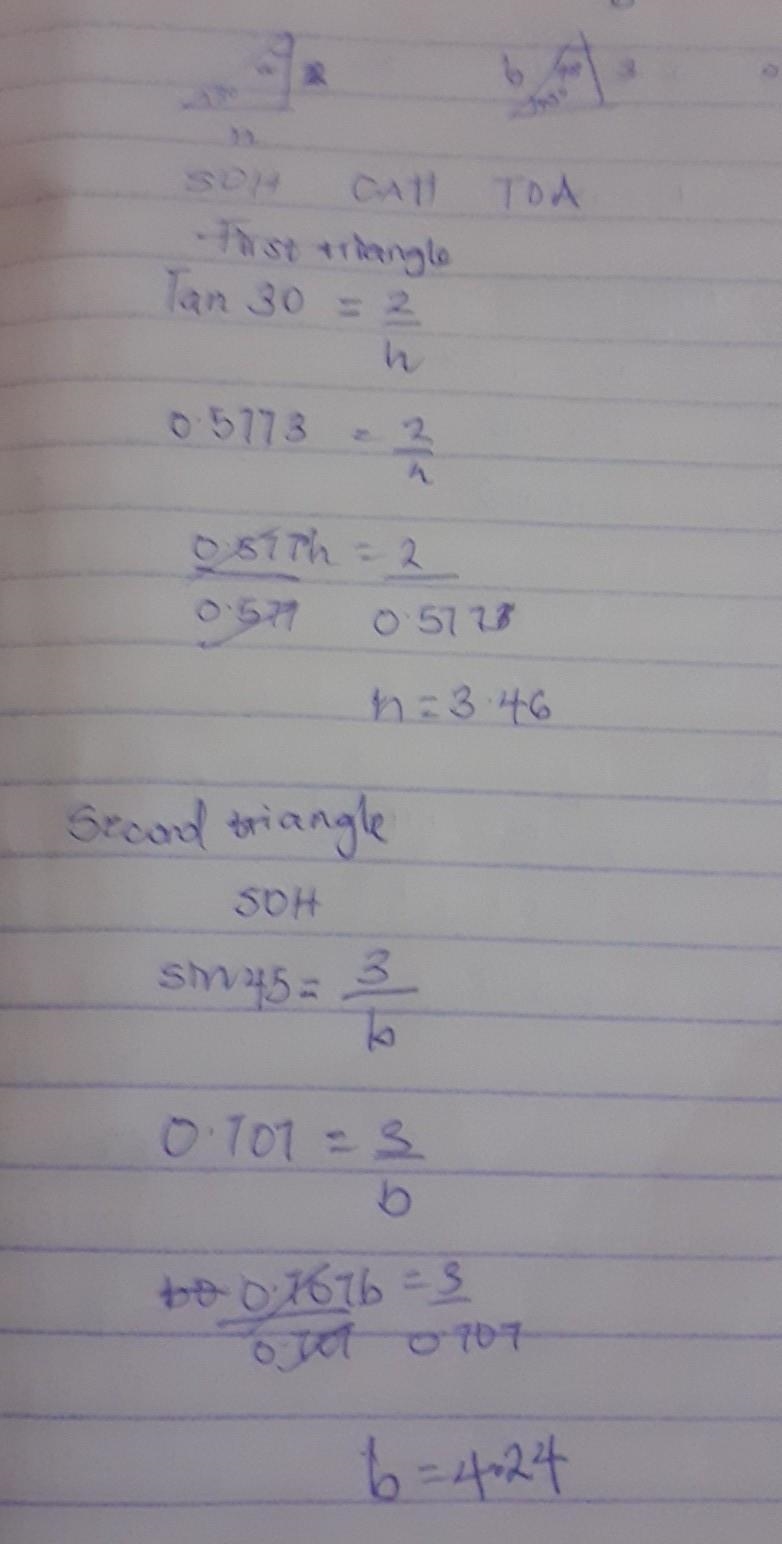 b 3
n
SOH CAH TOA
First triangle
Tan 30 = 2
n
0.5773 = 2
n
0.577n = 2
0.577 0.5773
n = 3.46
Second triangle
SOH
Sin 45 = 3
b
0.707 = 3
b
0.707b = 3
0.707 0.707
b = 4.24